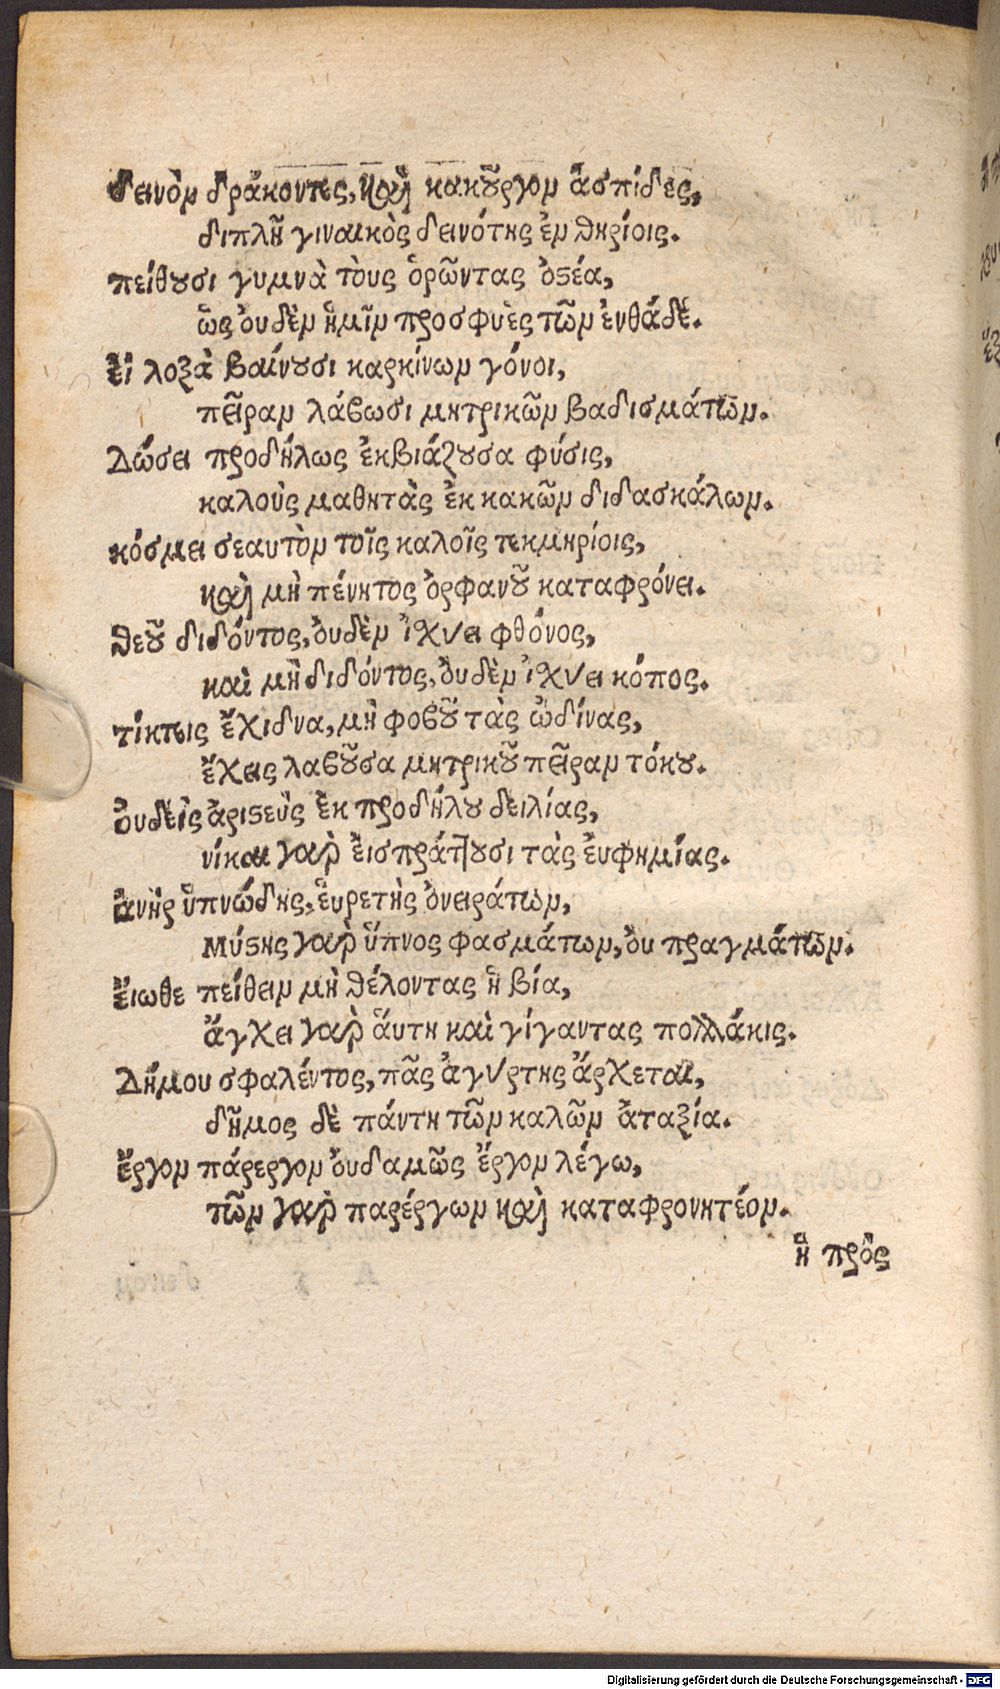 δεινὸν δράκοντες, καὶ κακοῦργον ἀσπίδες,
διπλῆ γιναικὸς δεινότης ἐν θηρίοις.
πείθουσι γυμνὰ τοὺς ὁρῶντας ὀστέα,
ὡς ὀυδὲν ἡμῖν προσφυὲς τῶν ἐνθάδε.
Ἐι λοξὰ βαίνουσι καρκίνων γόνοι,
πεῖραν λάβωσι μητρικῶν βαδισμάτων.
Δώσει προδήλως ἐκβιάζουσα φύσις,
καλοὺς μαθητὰς ἐκ κακῶν διδασκάλων.
κόσμει σεαυτὸν τοῖς καλοῖς τεκμηρίοις,
καὶ μὴ πένητος ὀρφανοῦ καταφρόνει.
θεοῦ διδόντος, ὀυδὲν ἰχύει φθόνος,
καὶ μὴ διδόντος, ὀυδὲν ἰχύει κόπος.
τίκτεις ἔχιδνα, μὴ φοβοῦ τὰς ὠδίνας,
ἔχεις λαβοῦσα μητρικοῦ πεῖραν τόκου.
ὀυδεὶς ἀριστεὺς ἐκ προδήλου δειλίας,
νίκαι γὰρ ἐισπράττουσι τὰς ἐυφημίας.
ἀνὴρ ὑπνώδης, ἑυρετὴς ὀνειράτων,
Μύστης γὰρ ὕπνος φασμάτων, ὀυ πραγμάτων.
Ἔιωθε πείθειν μὴ θέλοντας ἡ βία,
ἄγχει γὰρ ἅυτη καὶ γίγαντας πολλάκις.
Δήμου σφαλέντος, πᾶς ἀγύρτης ἄρχεται,
δῆμος δὲ πάντη τῶν καλῶν ἀταξία.
ἔργον πάρεργον ὀυδαμῶς ἔργον λέγω,
τῶν γὰρ παρέργων καὶ καταφρονητέον.
ἢ πρὸς
Digitalisierung gefördert durch die Deutsche Forschungsgemeinschaft - DFG